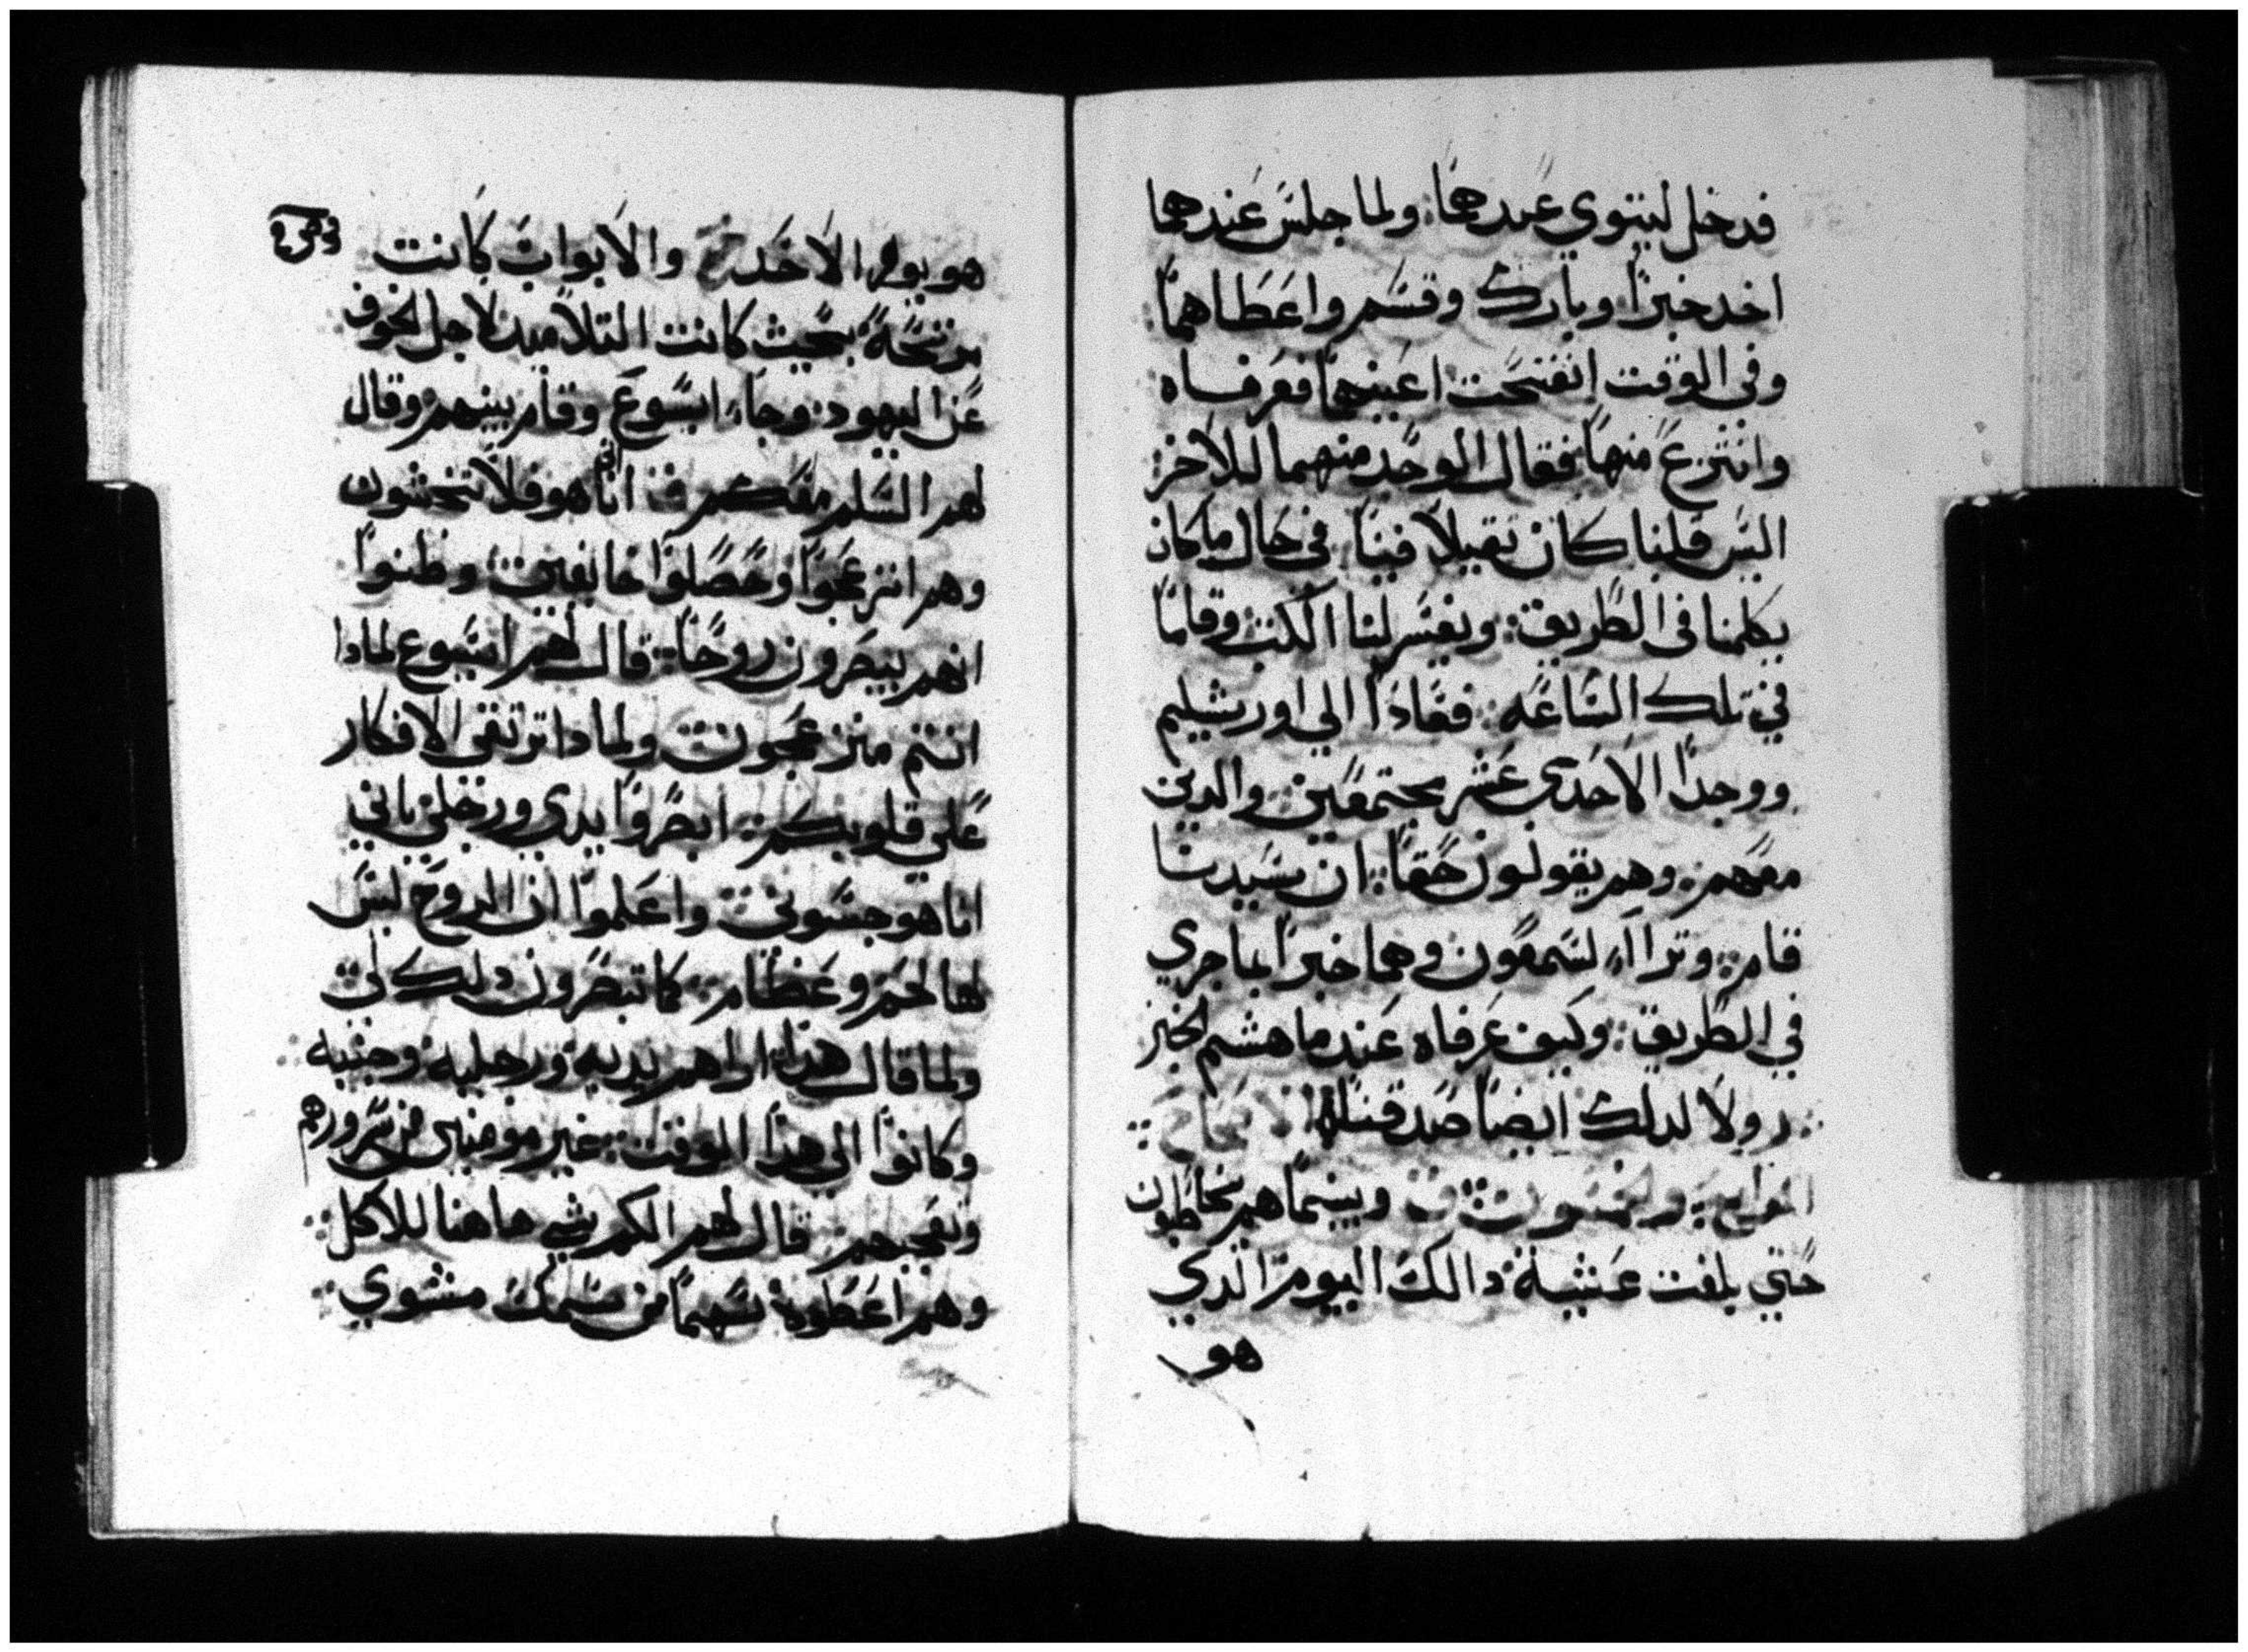 فدخل ليتوي عندهما: ولما جلس عندهما
اخد خبزًا وبارك وقسم واعطاهما:
وفي الوقت انفتحت اعينهما فعرفاه
وانتزع منهما: فقال الوحد منهما للاخر:
اليس قلبنا كان تقيلًا فينا: في حال ما كان
يكلمنا في الطريق: ويفسر لنا الكتب وقاما
في تلك الساعه: فعادا الي اورشليم
ووجدا الاحدي عشر مجتمعين: والدين
معهم: وهم يقولون حقًا: ان سيدنا
قام: وتراآء لسمعون وهما خبرا بما جري
في الطريق: وكيف عرفاه عند ما هشم الخبز
: ولا لدلك ايضا صدقتا
ف وبينما هم يخاطبون
حتي بلغت عشية: دالك اليوم الدي
هو
هو يوم الاحد والابواب كانت
مرتتجة بحيث كانت التلاميد لاجل الخوف:
عن اليهود: وجاء ايسوع وقام بينهم وقال
لهم السلم معكم ف انا هو فلا تخشون
وهم انزعجوا وحصلوا خايفين: وظنوا
انهم يبصرون روحًا: قال لهم ايسوع لمادا
انتم منزعجون: ولمادا ترتقي الافكار
علي قلوبكم: ابصروا يدي ورجلي باني
انا هو جسوني: واعلموا ان الروح ليس
لها لحم وعظام: كما تبصرون دلك لي:
ولما قال هدا: اراهم يديه: ورجليه: وجنبه:
وكانوا الي هدا الوقت: غير مومنين من سرورهم
وتعجبهم: قال لهم الكم شي هاهنا للاكل:
وهم اعطوه سهمًا من سمك مشوي: